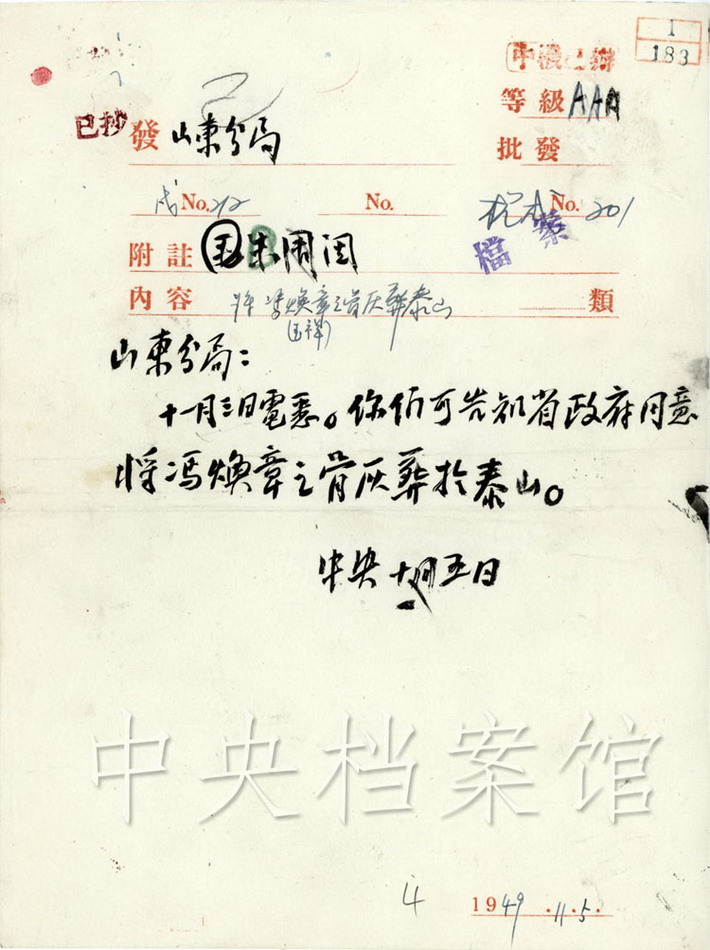 1
183
中機已辦
等級 AAA
已抄
發 山東分局
批發
No. 212 No. No. 201
檔案
附註
內容 將馮煥章之骨灰葬泰山 類
(玉祥)
山東分局：
十一月三日電悉。你們可告知省政府同意
将馮煥章之骨灰葬於泰山。
中央 十一月五日
中央档案馆
4
1949.11.5.